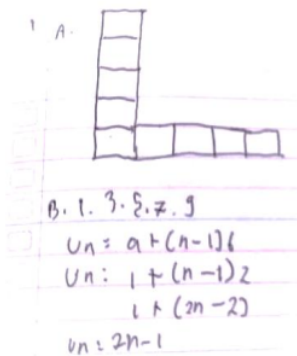 1 A.
B. 1. 3. 5. 7. 9
Un = a + (n-1)b
Un : 1 + (n-1)2
1 + (2n-2)
Un : 2n-1